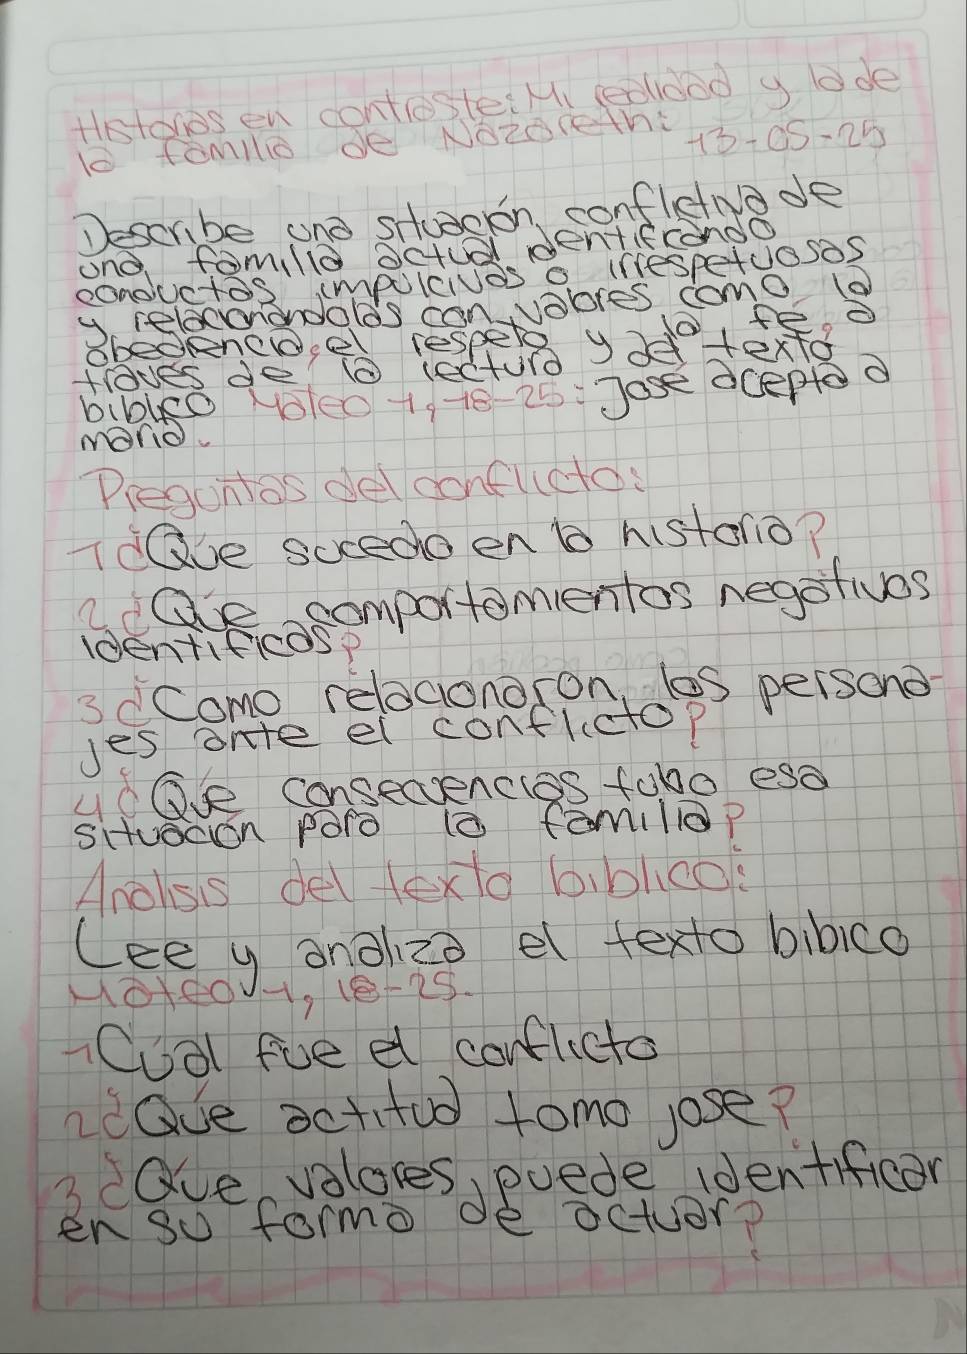 Historias en contraste: Mi realidad y la de
la familia de Nazareth:
13-05-25
Describe una situación conflictiva de
una familia actual identificando
conductas impulcivas o irrespetuosas
y relacionandolas con valores como la
obediencia, el respeto y la fe, a
traves de la lectura del texto
biblico Mateo 1, 18-25: Jose acepta a
maria.
Preguntas del conflicto:
1 ¿Que sucedio en la historia?
2 ¿Que comportamientos negativos
identificas?
3 ¿Como relacionaron los persona-
jes ante el conflicto?
4 ¿Que consecuencias tubo esa
situación para la familia?
Analisis del texto biblico:
Lee y analiza el texto bibico
Mateo 1, 18-25.
1 Cual fue el conflicto
2 ¿Que actitud tomo jose?
3 ¿Que valores puede identificar
en su forma de actuar?